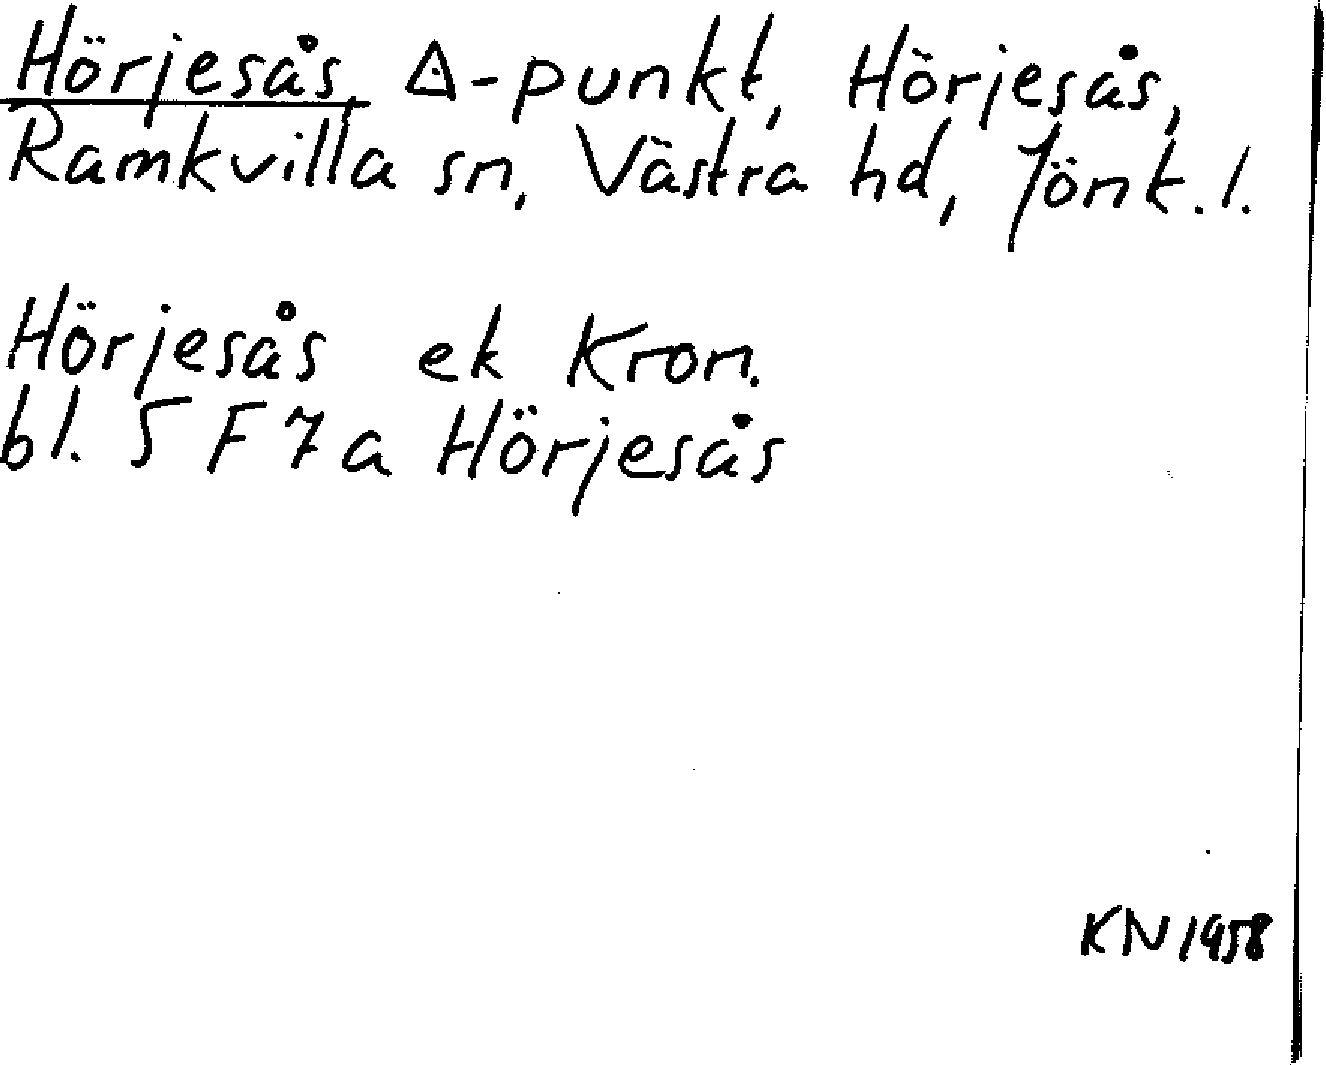 Hörjesås, △-punkt, Hörjesås,
Ramkvilla sn, Västra hd, Jönk. l.
Hörjesås ek Kron.
bl. 5 F 7 a Hörjesås
KN 1958